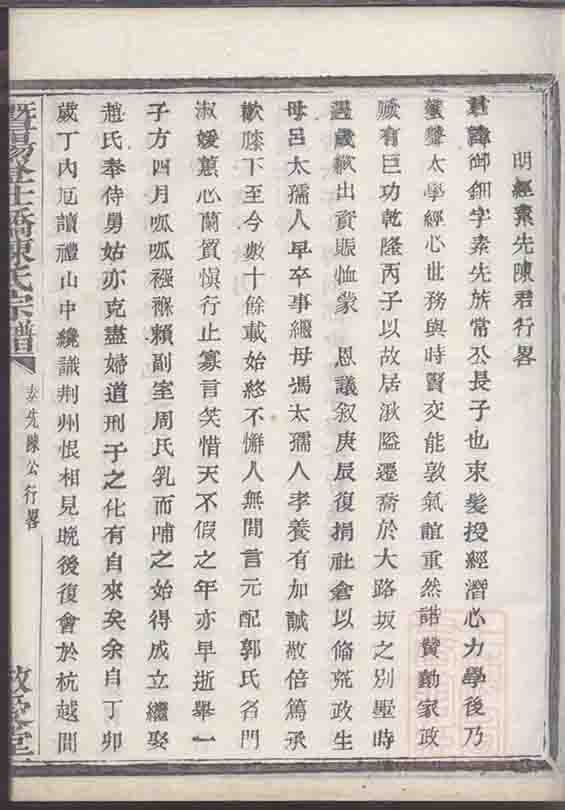 明經素先陳君行畧
君諱御鈿字素先族常公長子也束髮授經潛心力學後乃
蜚聲太學經心世務與時賢交能敦氣誼重然諾贊動家政
厥有巨功乾隆丙子以故居湫隘遷喬於大路坂之別墅時
遇歲歉出資賑恤蒙 恩議叙庚辰復捐社倉以脩荒政生
母呂太孺人早卒事繼母馮太孺人孝養有加誠敬倍篤承
歡膝下至今數十餘載始終不懈人無間言元配郭氏名門
淑媛蕙心蘭質慎行止寡言笑惜天不假之年亦早逝舉一
子方四月呱呱襁褓賴副室周氏乳而哺之始得成立繼娶
趙氏奉侍舅姑亦克盡婦道刑于之化有自來矣余自丁卯
歲丁內厄讀禮山中纔識荆州恨相見晚後復會於杭越間
暨陽 陳氏宗譜
素先陳公行畧
敬 堂